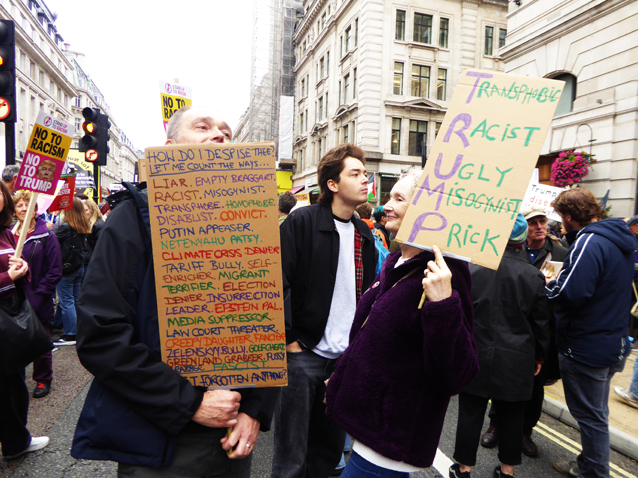 NO TO
RACISM
NO TO
TRUMP
NO TO
HOW DO I DESPISE THEE
LET ME COUNT THE WAYS...
LIAR. EMPTY BRAGGART
RACIST. MISOGYNIST.
TRANSPHOBE. HOMOPHOBE.
DISABLIST. CONVICT.
PUTIN APPEASER.
NETENYAHU PATSY.
CLIMATE CRISIS DENIER
TARIFF BULLY. SELF-
ENRICHER. MIGRANT
TERRIFIER. ELECTION
DENIER. INSURRECTION
LEADER. EPSTEIN PAL.
MEDIA SUPPRESSOR
LAW COURT THREATER.
CREEPY DAUGHTER FANCIER
ZELENSKY BULLY. GOLF CHEAT
GREENLAND GRABBER. PUSSY
FASCIST
I FORGOTTEN ANYTHING?
TRANSPHOBIC
RACIST
UGLY
MISOGYNIST
PRICK